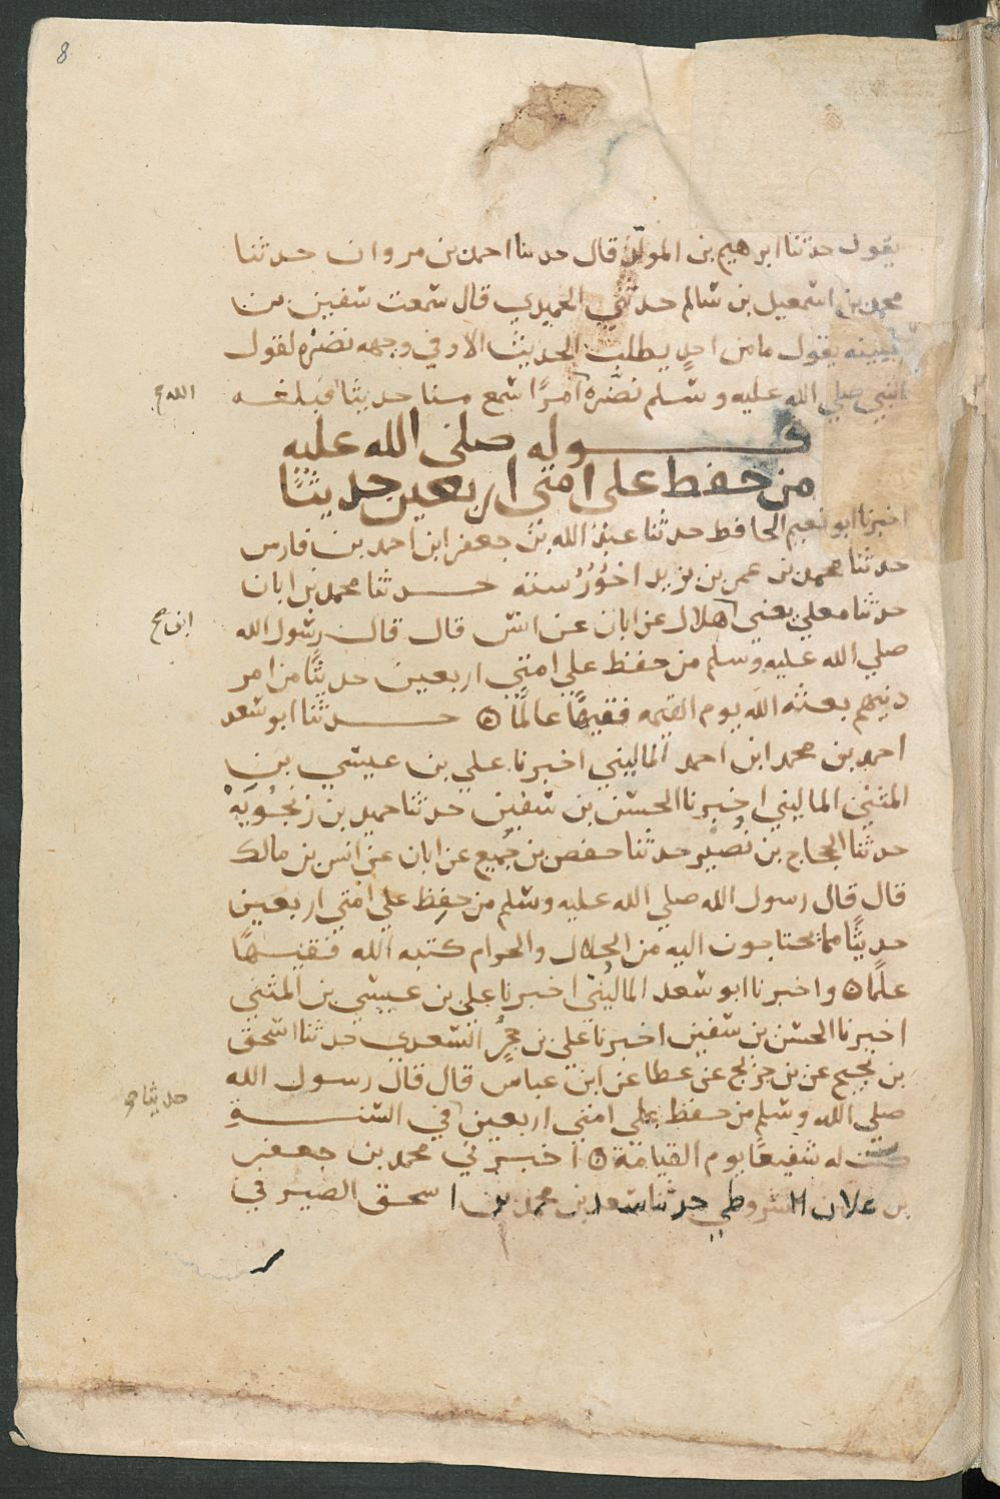 8
يقول حدثنا ابرهيم بن المولد قال حدثنا احمد بن مروان حدثنا
محمد بن اسمعيل بن سالم حدثني الحميدي قال سمعت سفين بن
عيينه يقول ما من احدٍ يطلب الحديث الا وفي وجهه نضرة لقول
النبي صلي الله عليه وسلم نضّره امرًا سمع منا حديثا فبلغه
الله صح
قوله صلى الله عليه
من حفظ على امتي اربعين حديثًا
اخبرنا ابو نعيم الحافظ حدثنا عبد الله بن جعفر ابن احمد بن فارس
حدثنا محمد بن عمر بن يزيد اخو رُسته حدثنا محمد بن ابان
حدثنا معلي يعني هلال عن ابان عن انس قال قال رسول الله
ابن صح
صلي الله عليه وسلم من حفظ علي امتي اربعين حديثًا من امر
دينهم بعثه الله يوم القيمه فقيهًا عالمًا ه حدثنا ابو سعد
احمد بن محمد ابن احمد الماليني اخبرنا علي بن عيسي بن
المثني الماليني اخبرنا الحسن بن سفين حدثنا حميد بن زنجُويَهْ
حدثنا الحجاج بن نُصير حدثنا حفص بن جُميع عن ابان عن انس بن مالك
قال قال رسول الله صلي الله عليه وسلم من حفِظ علي امتي اربعين
حديثًا مما يحتاجون اليه من الحلال والحرام كتبه الله فقيهًا
علمًا ه واخبرنا ابو سعد الماليني اخبرنا علي بن عيسي بن المثني
اخبرنا الحسن بن سفين اخبرنا علي بن حجرٍ السعدي حدثنا اسحق
بن نجيح عن بن جريج عن عطا عن ابن عباس قال قال رسول الله
صلي الله وسلم من حفظ علي امتي اربعين في السنةِ
حديثا صح
كنت له شفيعًا يوم القيامة ه اخبرني محمد بن جعفر
بن علان الشروطي حدثنا سعد بن محمد بن اسحق الصيرفي